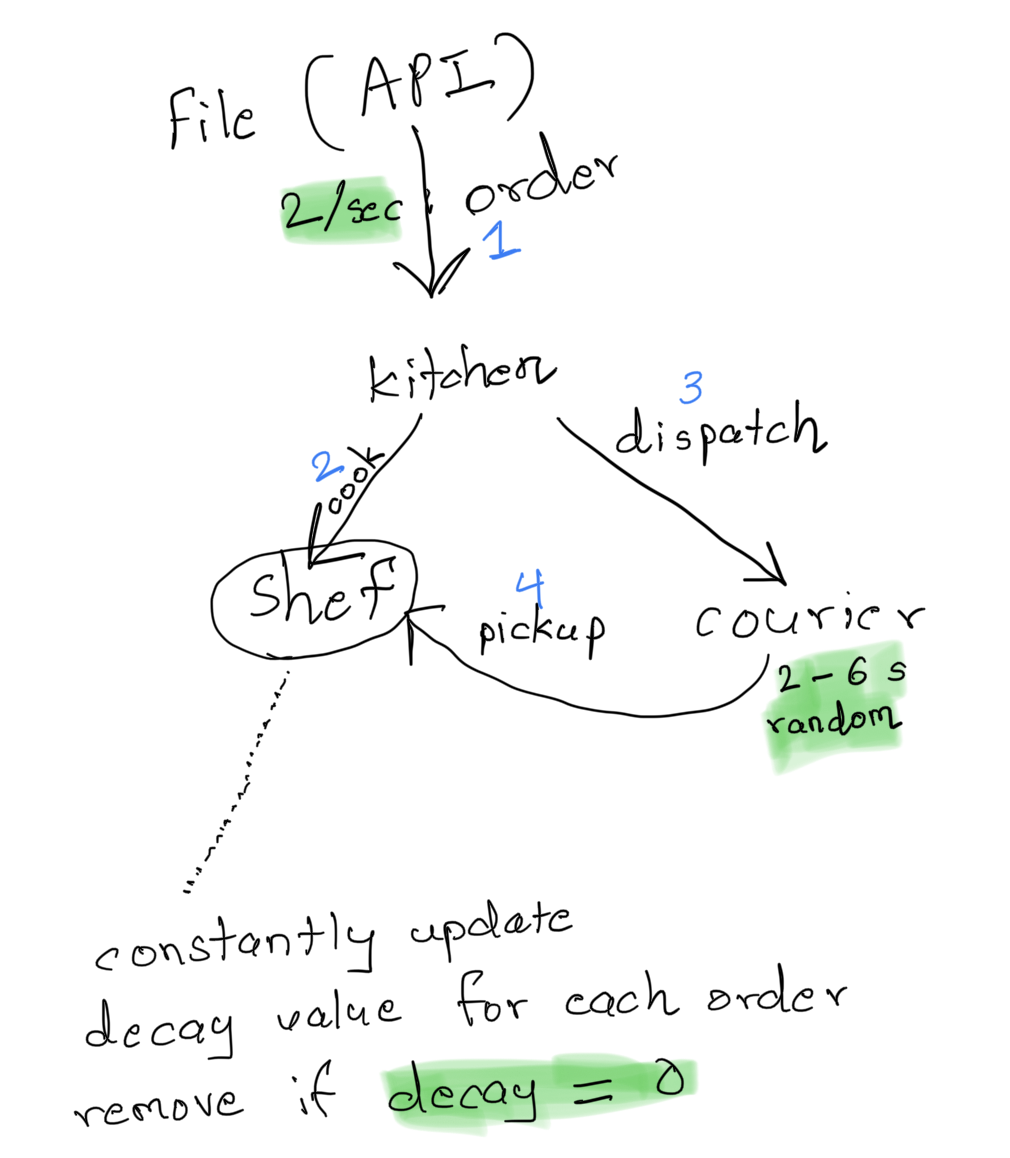 File (API)
2/sec
order
1
kitchen
3
dispatch
2
cook
Shef
4
pickup
courier
2-6 s
random
constantly update
decay value for each order
remove if decay = 0